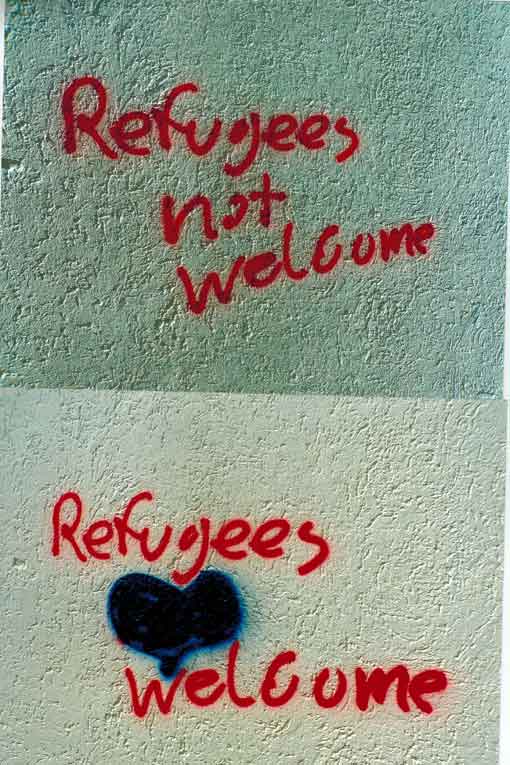 Refugees
not
welcome
Refugees
welcome